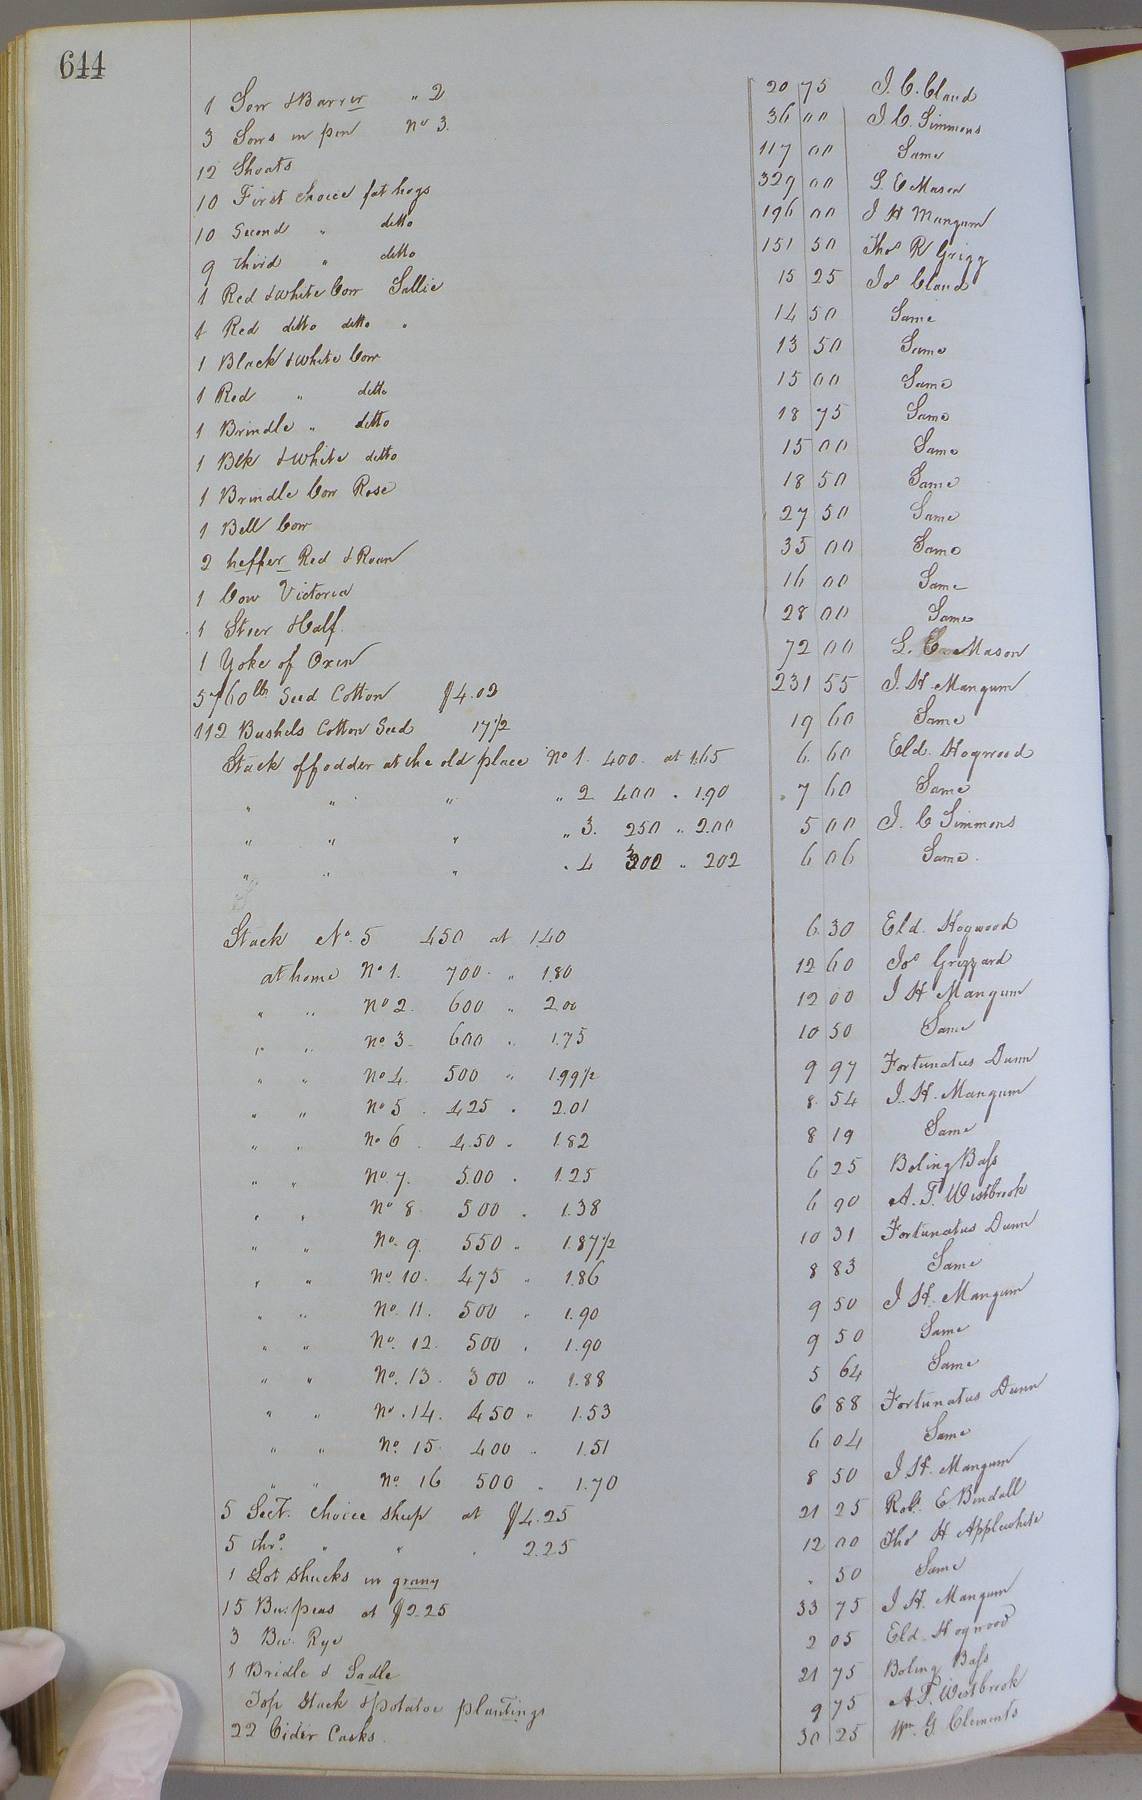 644
1 Sow & Barrer " 2 20 75 J. C. Claud
3 Sows in pen No 3. 36 00 J. C. Simmons
12 Shoats 117 00 Same
10 First choice fat hogs 329 00 L. C Mason
10 Second " ditto 196 00 J H Mangum
9 third " ditto 151 50 Thos R Grigg
1 Red & white Cow Sallie 15 25 Jos Claud
1 Red ditto ditto " 14 50 Same
1 Black & white Cow 13 50 Same
1 Red " ditto 15 00 Same
1 Brindle " ditto 18 75 Same
1 Blk & white ditto 15 00 Same
1 Brindle Cow Rose 18 50 Same
1 Bell Cow 27 50 Same
2 heffer Red & Roan 35 00 Same
1 Cow Victoria 16 00 Same
1 Steer Half. 28 00 Same
1 Yoke of Oxen 72 00 L. C. Mason
5760 lbs Seed Cotton $4.02 231 55 J. H. Mangum
112 Bushels Cotton Seed 17 1/2 19 60 Same
Stack of fodder at the old place No 1. 400. at 1.65 6 60 Eld. Hogwood
" " " " 2 400 " 1.90 7 60 Same
" " " " 3. 250 " 2.00 5 00 J. C Simmons
" " " " 4 300 " 202 6 06 Same.
Stack No. 5 450 at 1.40 6 30 Eld. Hogwood
at home No 1. 700 " 1.80 12 60 Jos Grizzard
" " No 2. 600 " 2.00 12 00 J H Mangum
" " No. 3 600 " 1.75 10 50 Same
" " No 4. 500 " 1.99 1/2 9 97 Fortunatus Dunn
" " No 5. 425 " 2.01 8 54 J. H. Mangum
" " No 6. 450 " 1.82 8 19 Same
" " No 7. 500 " 1.25 6 25 Boling Bass
" " No 8. 500 " 1.38 6 90 A. T. Westbrook
" " No. 9. 550 " 1.87 1/2 10 31 Fortunatus Dunn
" " No. 10. 475 " 1.86 8 83 Same
" " No. 11. 500 " 1.90 9 50 J H. Mangum
" " No. 12. 500 " 1.90 9 50 Same
" " No. 13. 300 " 1.88 5 64 Same
" " No. 14. 450 " 1.53 6 88 Fortunatus Dunn
" " No. 15 400 " 1.51 6 04 Same
" " No. 16 500 " 1.70 8 50 J H. Mangum
5 Sect. choice sheep at $4.25 21 25 Robt. E. Bendall
5 thr. " " " 2.25 12 00 Thos H Applewhite
1 Lot shucks in grany 50 Same
15 Bu: peas at $2.25 33 75 J H. Mangum
3 Bu. Rye 2 05 Eld. Hogwood
1 Bridle & Sadle 21 75 Boling Bass
Top Stack & potatoe plantings 9 75 A T. Westbrook
22 Cider Casks. 30 25 Wm. G. Clements